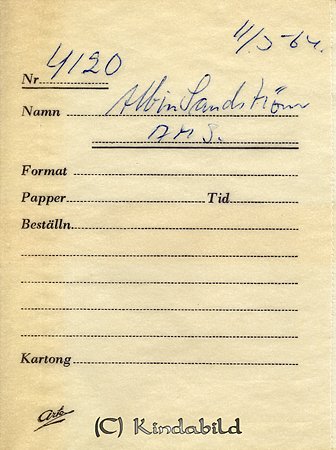 11/3-64.
Nr 4120
Namn Albin Sandström
AMS.
Format
Papper Tid
Beställn.
Kartong
Ark
(C) Kindabild